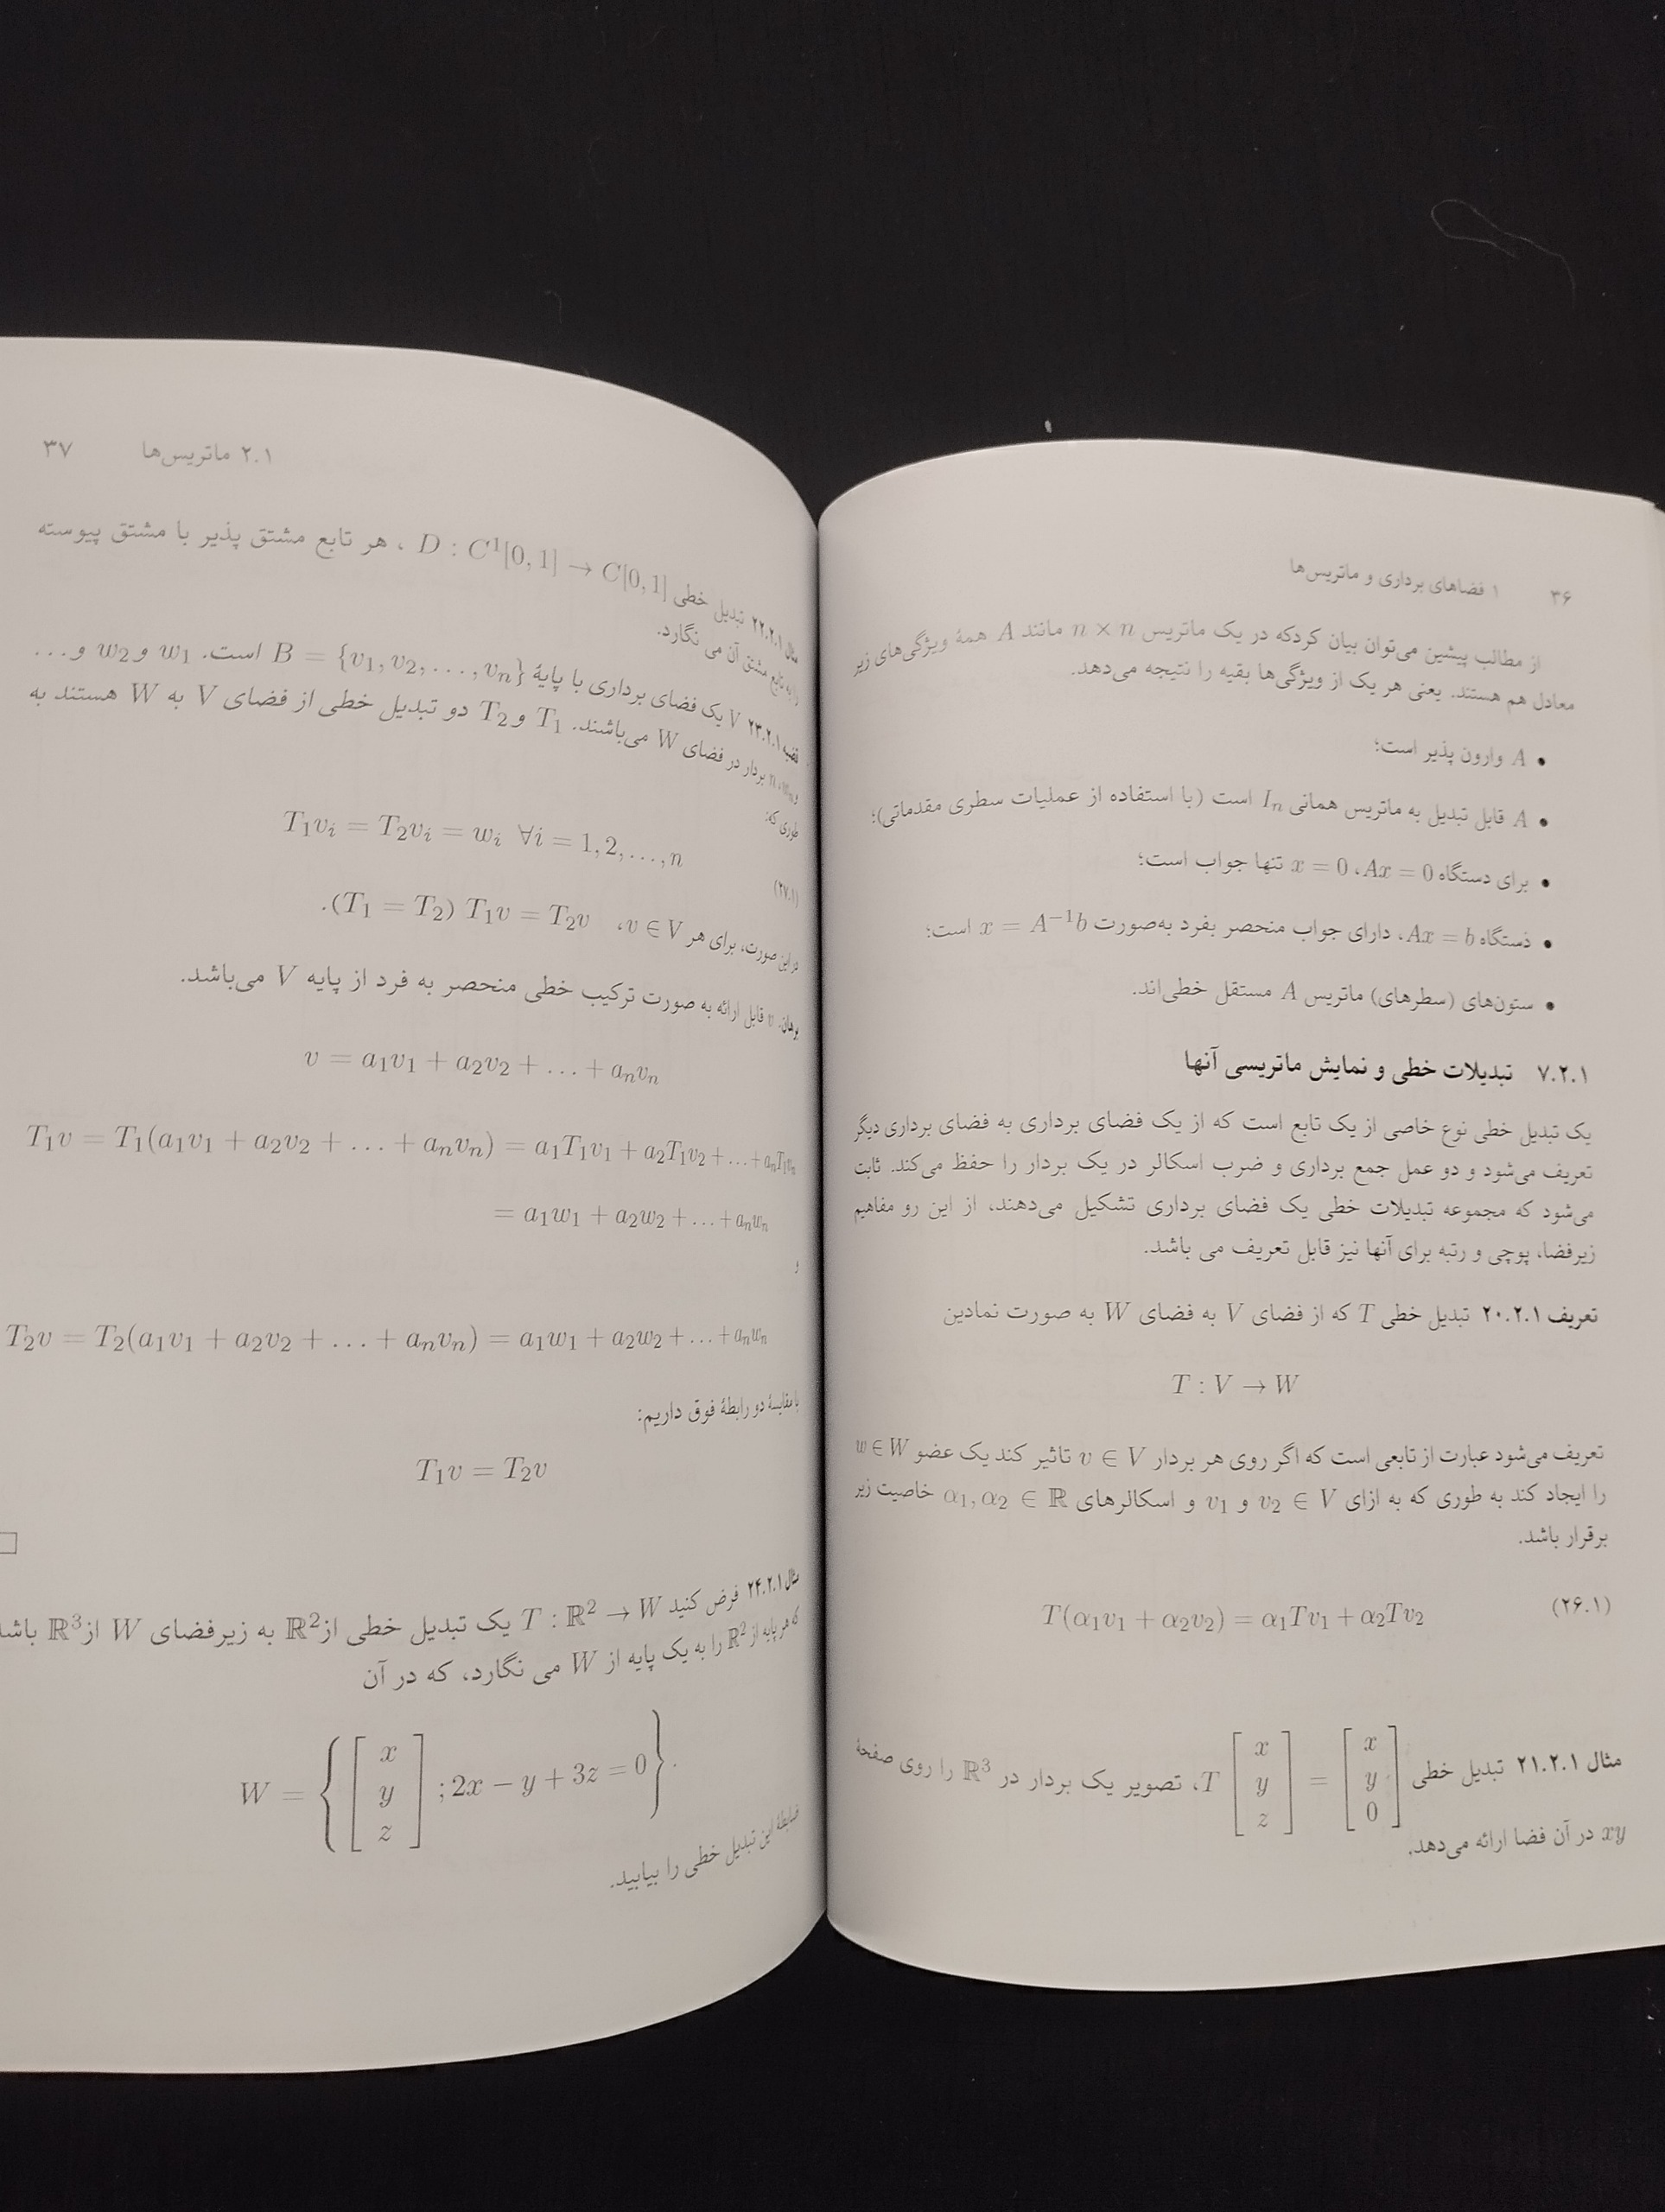 ۳۶ ۱ فضاهای برداری و ماتریس‌ها
از مطالب پیشین می‌توان بیان کردکه در یک ماتریس n × n مانند A همهٔ ویژگی‌های زیر
معادل هم هستند. یعنی هر یک از ویژگی‌ها بقیه را نتیجه می‌دهد.
• A وارون پذیر است؛
• A قابل تبدیل به ماتریس همانی Iₙ است (با استفاده از عملیات سطری مقدماتی)؛
• برای دستگاه Ax = 0، x = 0 تنها جواب است؛
• دستگاه Ax = b، دارای جواب منحصر بفرد به‌صورت x = A⁻¹b است؛
• ستون‌های (سطرهای) ماتریس A مستقل خطی‌اند.
۷.۲.۱ تبدیلات خطی و نمایش ماتریسی آنها
یک تبدیل خطی نوع خاصی از یک تابع است که از یک فضای برداری به فضای برداری دیگر
تعریف می‌شود و دو عمل جمع برداری و ضرب اسکالر در یک بردار را حفظ می‌کند. ثابت
می‌شود که مجموعه تبدیلات خطی یک فضای برداری تشکیل می‌دهند، از این رو مفاهیم
زیرفضا، پوچی و رتبه برای آنها نیز قابل تعریف می باشد.
تعریف ۲۰.۲.۱ تبدیل خطی T که از فضای V به فضای W به صورت نمادین
T : V → W
تعریف می‌شود عبارت از تابعی است که اگر روی هر بردار v ∈ V تاثیر کند یک عضو w ∈ W
را ایجاد کند به طوری که به ازای v₂ ∈ V و v₁ و اسکالرهای α₁, α₂ ∈ ℝ خاصیت زیر
برقرار باشد.
T(α₁v₁ + α₂v₂) = α₁Tv₁ + α₂Tv₂ (۲۶.۱)
مثال ۲۱.۲.۱ تبدیل خطی T [x y z] = [x y 0]، تصویر یک بردار در ℝ³ را روی صفحهٔ
xy در آن فضا ارائه می‌دهد.
۲.۱ ماتریس‌ها ۳۷
مثال ۲۲.۲.۱ تبدیل خطی D : C¹[0, 1] → C[0, 1] ، هر تابع مشتق پذیر با مشتق پیوسته
را به تابع مشتق آن می نگارد.
قضیه ۲۳.۲.۱ V یک فضای برداری با پایهٔ B = {v₁, v₂, . . . , vₙ} است. w₁ و w₂ و . . .
و wₙ، n بردار در فضای W می‌باشند. T₁ و T₂ دو تبدیل خطی از فضای V به W هستند به
طوری که:
T₁vᵢ = T₂vᵢ = wᵢ ∀i = 1, 2, . . . , n
(۲۷.۱)
در این صورت، برای هر v ∈ V، T₁v = T₂v (T₁ = T₂).
برهان. v قابل ارائه به صورت ترکیب خطی منحصر به فرد از پایه V می‌باشد.
v = a₁v₁ + a₂v₂ + . . . + aₙvₙ
T₁v = T₁(a₁v₁ + a₂v₂ + . . . + aₙvₙ) = a₁T₁v₁ + a₂T₁v₂ + . . . + aₙT₁vₙ
= a₁w₁ + a₂w₂ + . . . + aₙwₙ
و
T₂v = T₂(a₁v₁ + a₂v₂ + . . . + aₙvₙ) = a₁w₁ + a₂w₂ + . . . + aₙwₙ
با مقایسهٔ دو رابطهٔ فوق داریم:
T₁v = T₂v
□
مثال ۲۴.۲.۱ فرض کنید T : ℝ² → W یک تبدیل خطی از ℝ² به زیرفضای W از ℝ³ باشد
که هر پایه از ℝ² را به یک پایه از W می نگارد، که در آن
W = { [x y z] ; 2x − y + 3z = 0 }.
ضابطهٔ این تبدیل خطی را بیابید.